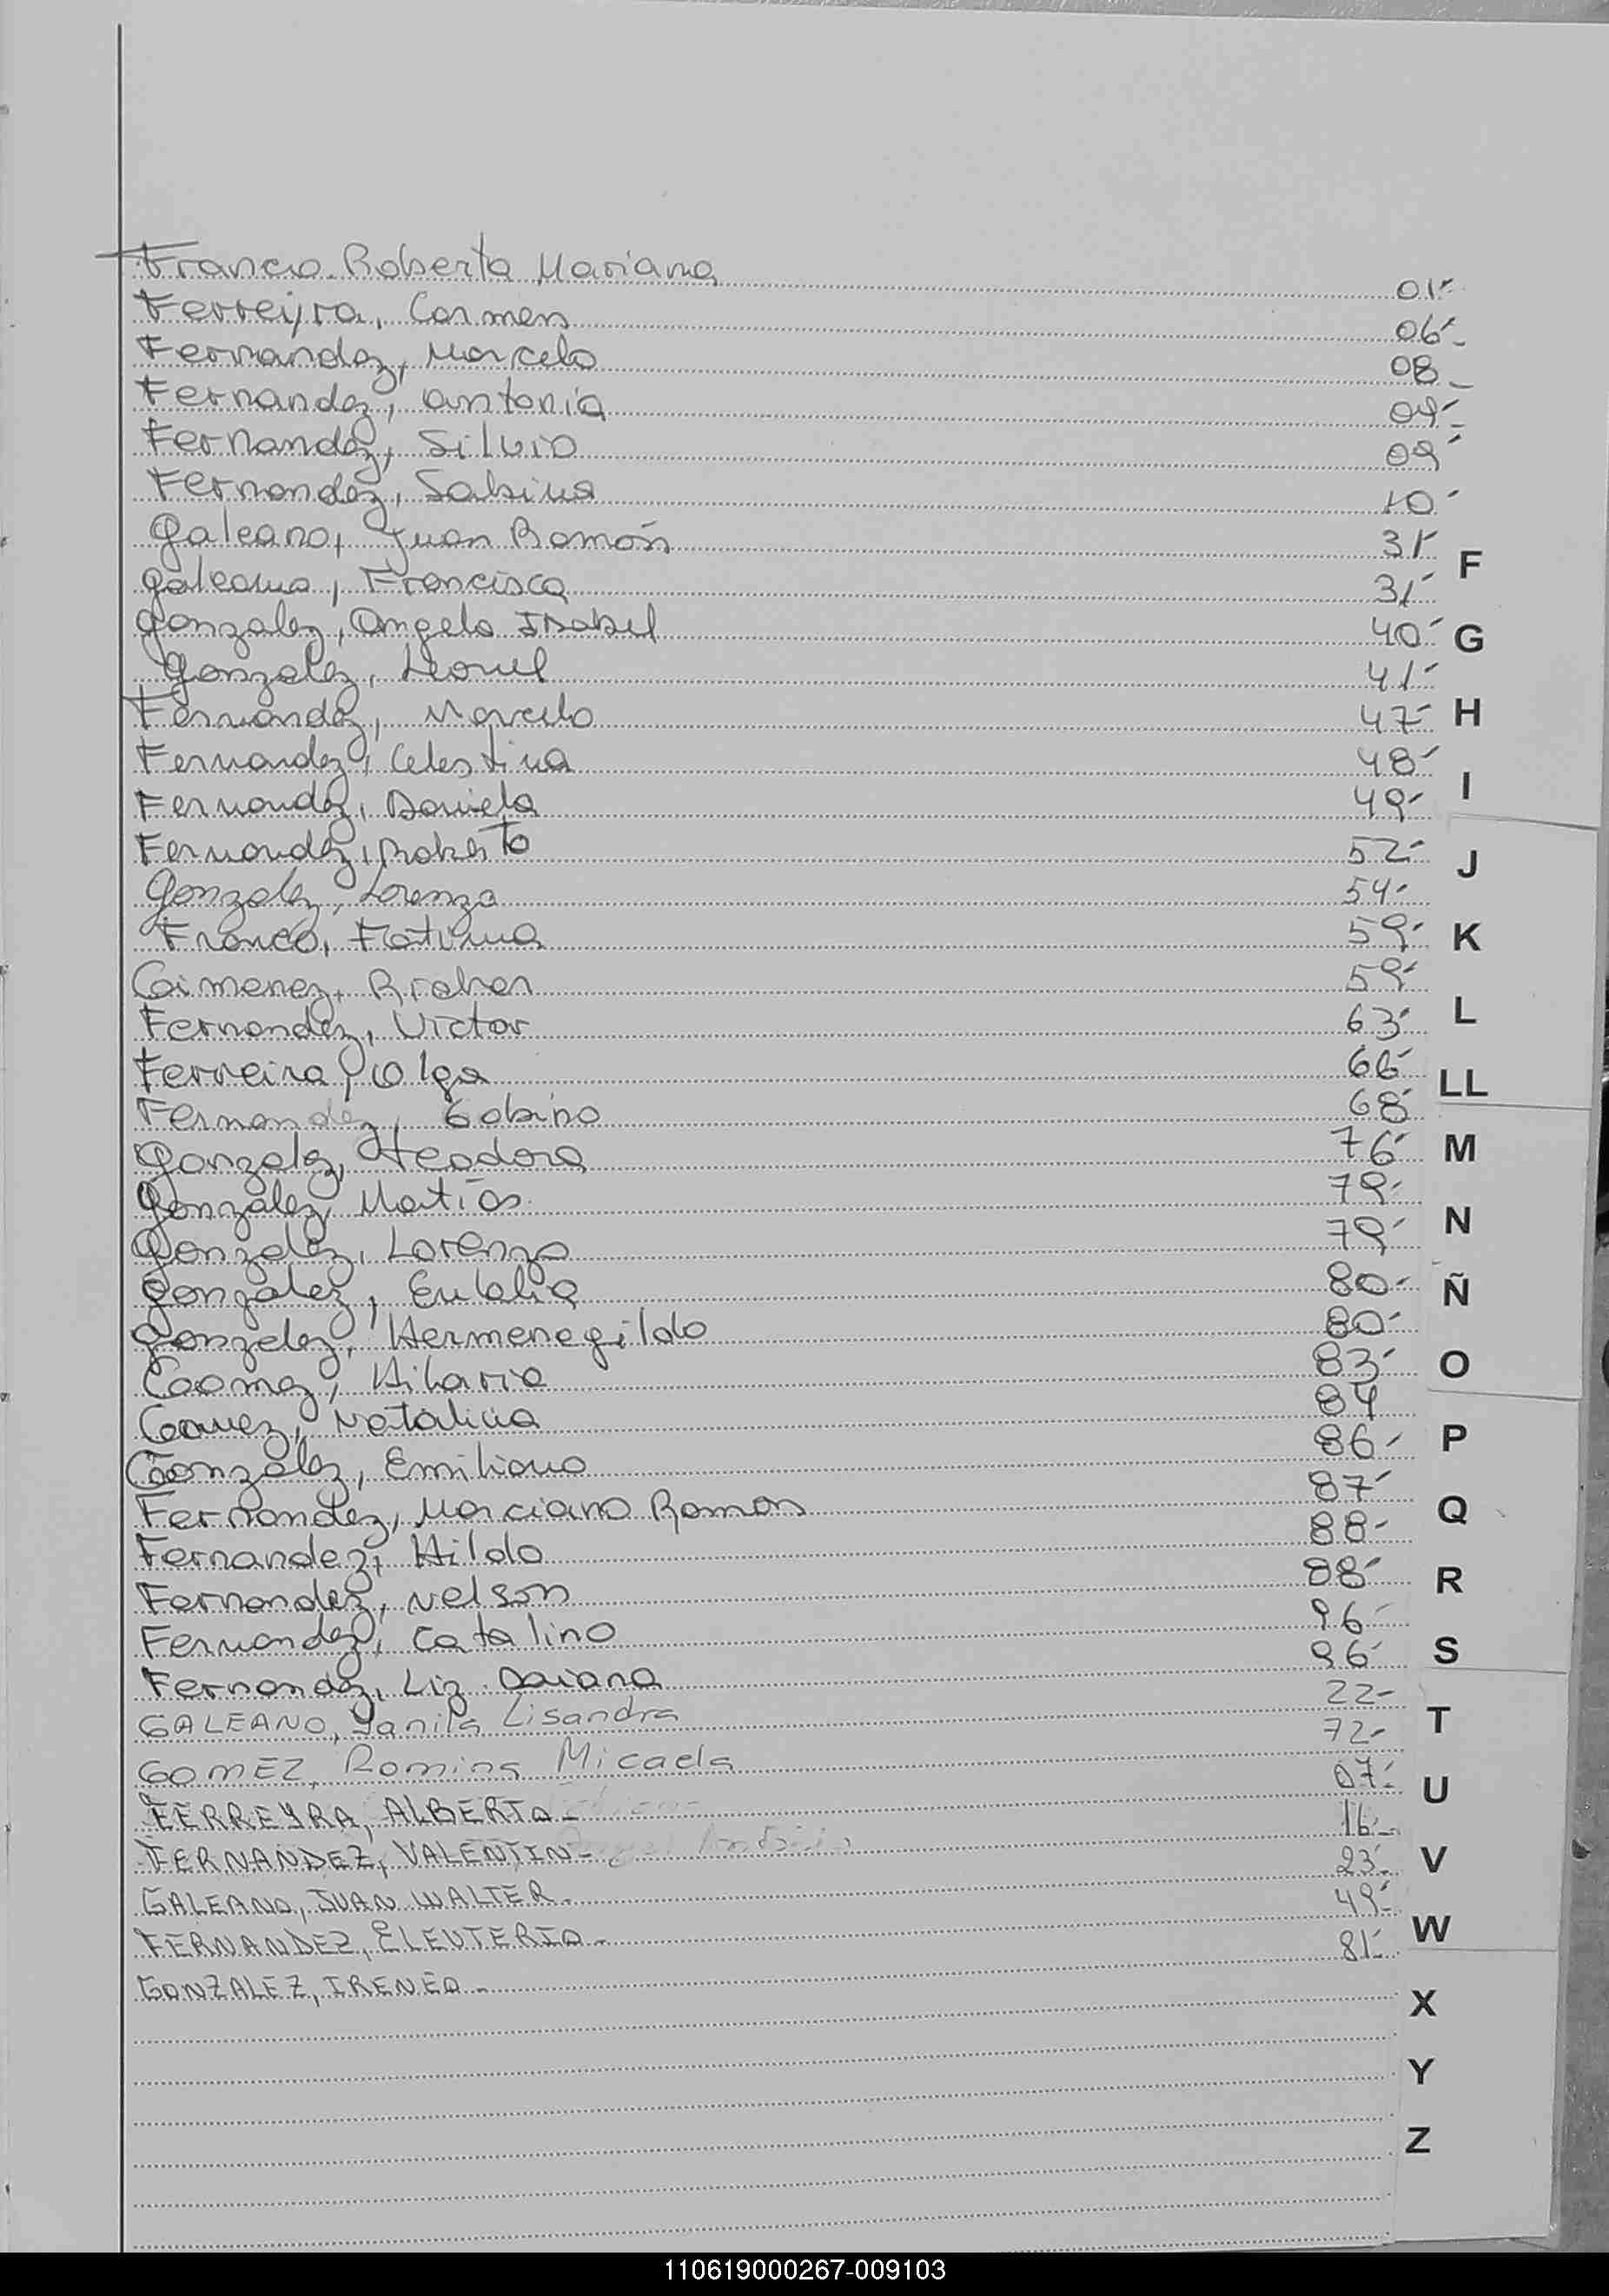 Francia Roberta Mariana 01-
Ferreyra, Carmen 06-
Fernandez, Marcelo 08-
Fernandez, Antonia 09-
Fernandez, Silvio 09-
Fernandez, Sabina 10-
Galeano, Juan Ramón 31-
Galeano, Francisca 31-
Gonzalez, Angela Isabel 40-
Gonzalez, Leonel 41-
Fernandez, Marcelo 47-
Fernandez, Celestina 48-
Fernandez, Daniela 49-
Fernandez, Roberto 52-
Gonzalez, Lorenza 54-
Franco, Fatima 59-
Gimenez, 59-
Fernandez, Victor 63-
Ferreira, Olga 66-
Fernandez, Gabino 68-
Gonzalez, Teodora 76-
Gonzalez, Matías 79-
Gonzalez, Lorenzo 79-
Gonzalez, Eulalia 80-
Gonzalez, Hermenegildo 80-
Goomez, Hilario 83-
Gomez, Natalicia 84
Gonzalez, Emiliano 86-
Fernandez, Marciano Ramon 87-
Fernandez, Hilda 88-
Fernandez, Nelson 88-
Fernandez, Catalino 96-
Fernandez, Liz Daiana 96-
GALEANO, Yanila Lisandra 22-
GOMEZ, Romina Micaela 72-
FERREYRA, ALBERTO- 07-
FERNANDEZ, VALENTIN- 16-
GALEANO, JUAN WALTER- 23-
FERNANDEZ, ELEUTERIO- 49-
GONZALEZ, IRENEO- 81-
F
G
H
I
J
K
L
LL
M
N
Ñ
O
P
Q
R
S
T
U
V
W
X
Y
Z
110619000267-009103